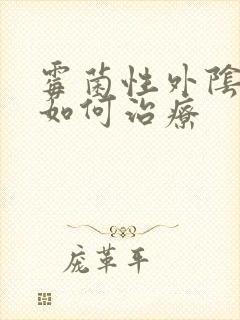 霉菌性外陰
如何治療
庞革平